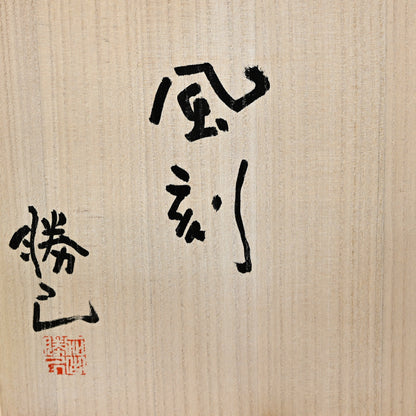 風刻
勝己